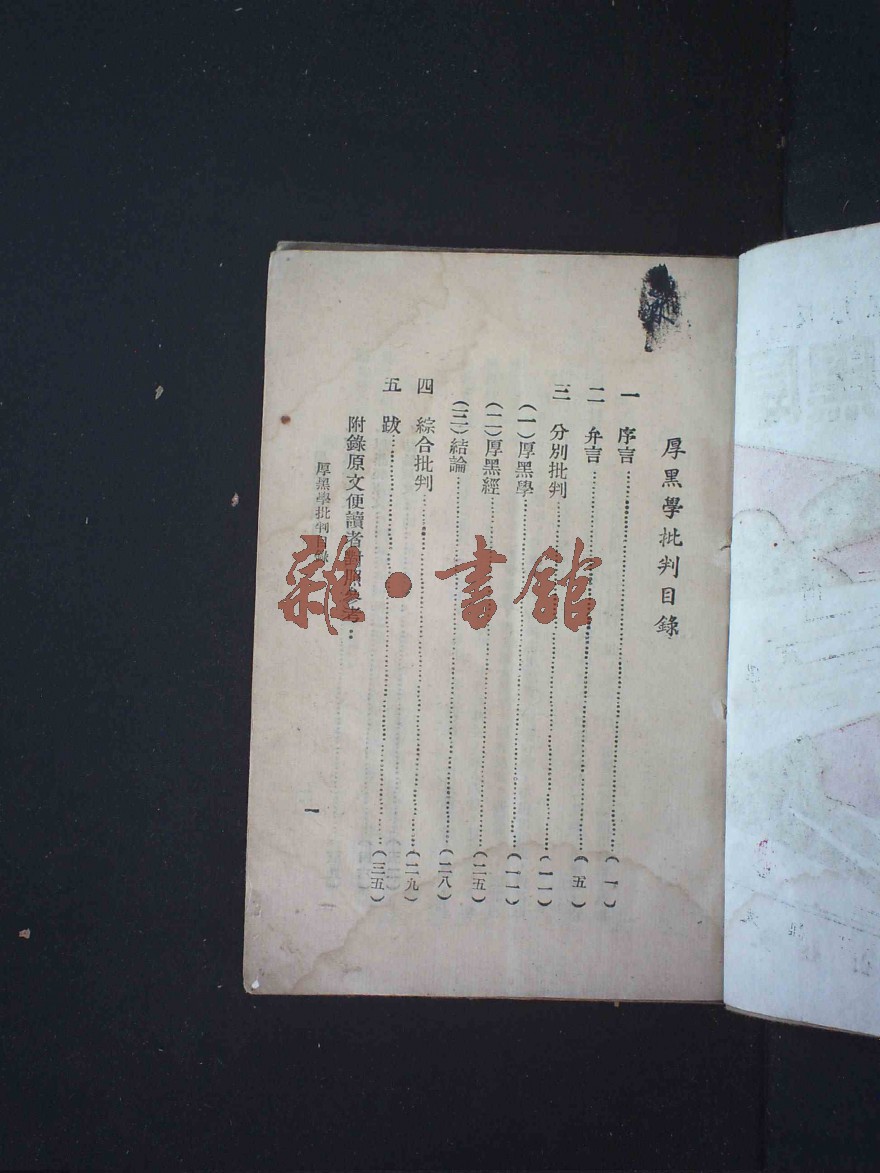 厚黑學批判目錄
一 序言……（一）
二 弁言……（五）
三 分別批判……（一一）
（一）厚黑學……（一一）
（二）厚黑經……（二五）
（三）結論……（二八）
四 綜合批判……（二九）
五 跋……（三五）
附錄原文便讀者對照參考…
厚黑學批判目錄
一
雜·書館